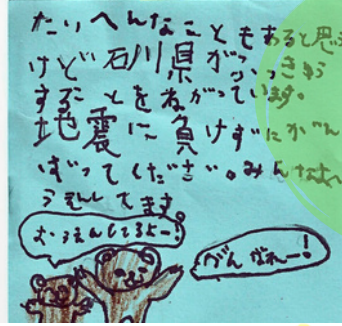 たいへんなこともあると思う
けど石川県がふっきゅう
することをねがっています。
地震に負けずにがん
ばってください。みんなで
うえんしてます。
おうえんしてるよー!
がんばれー!